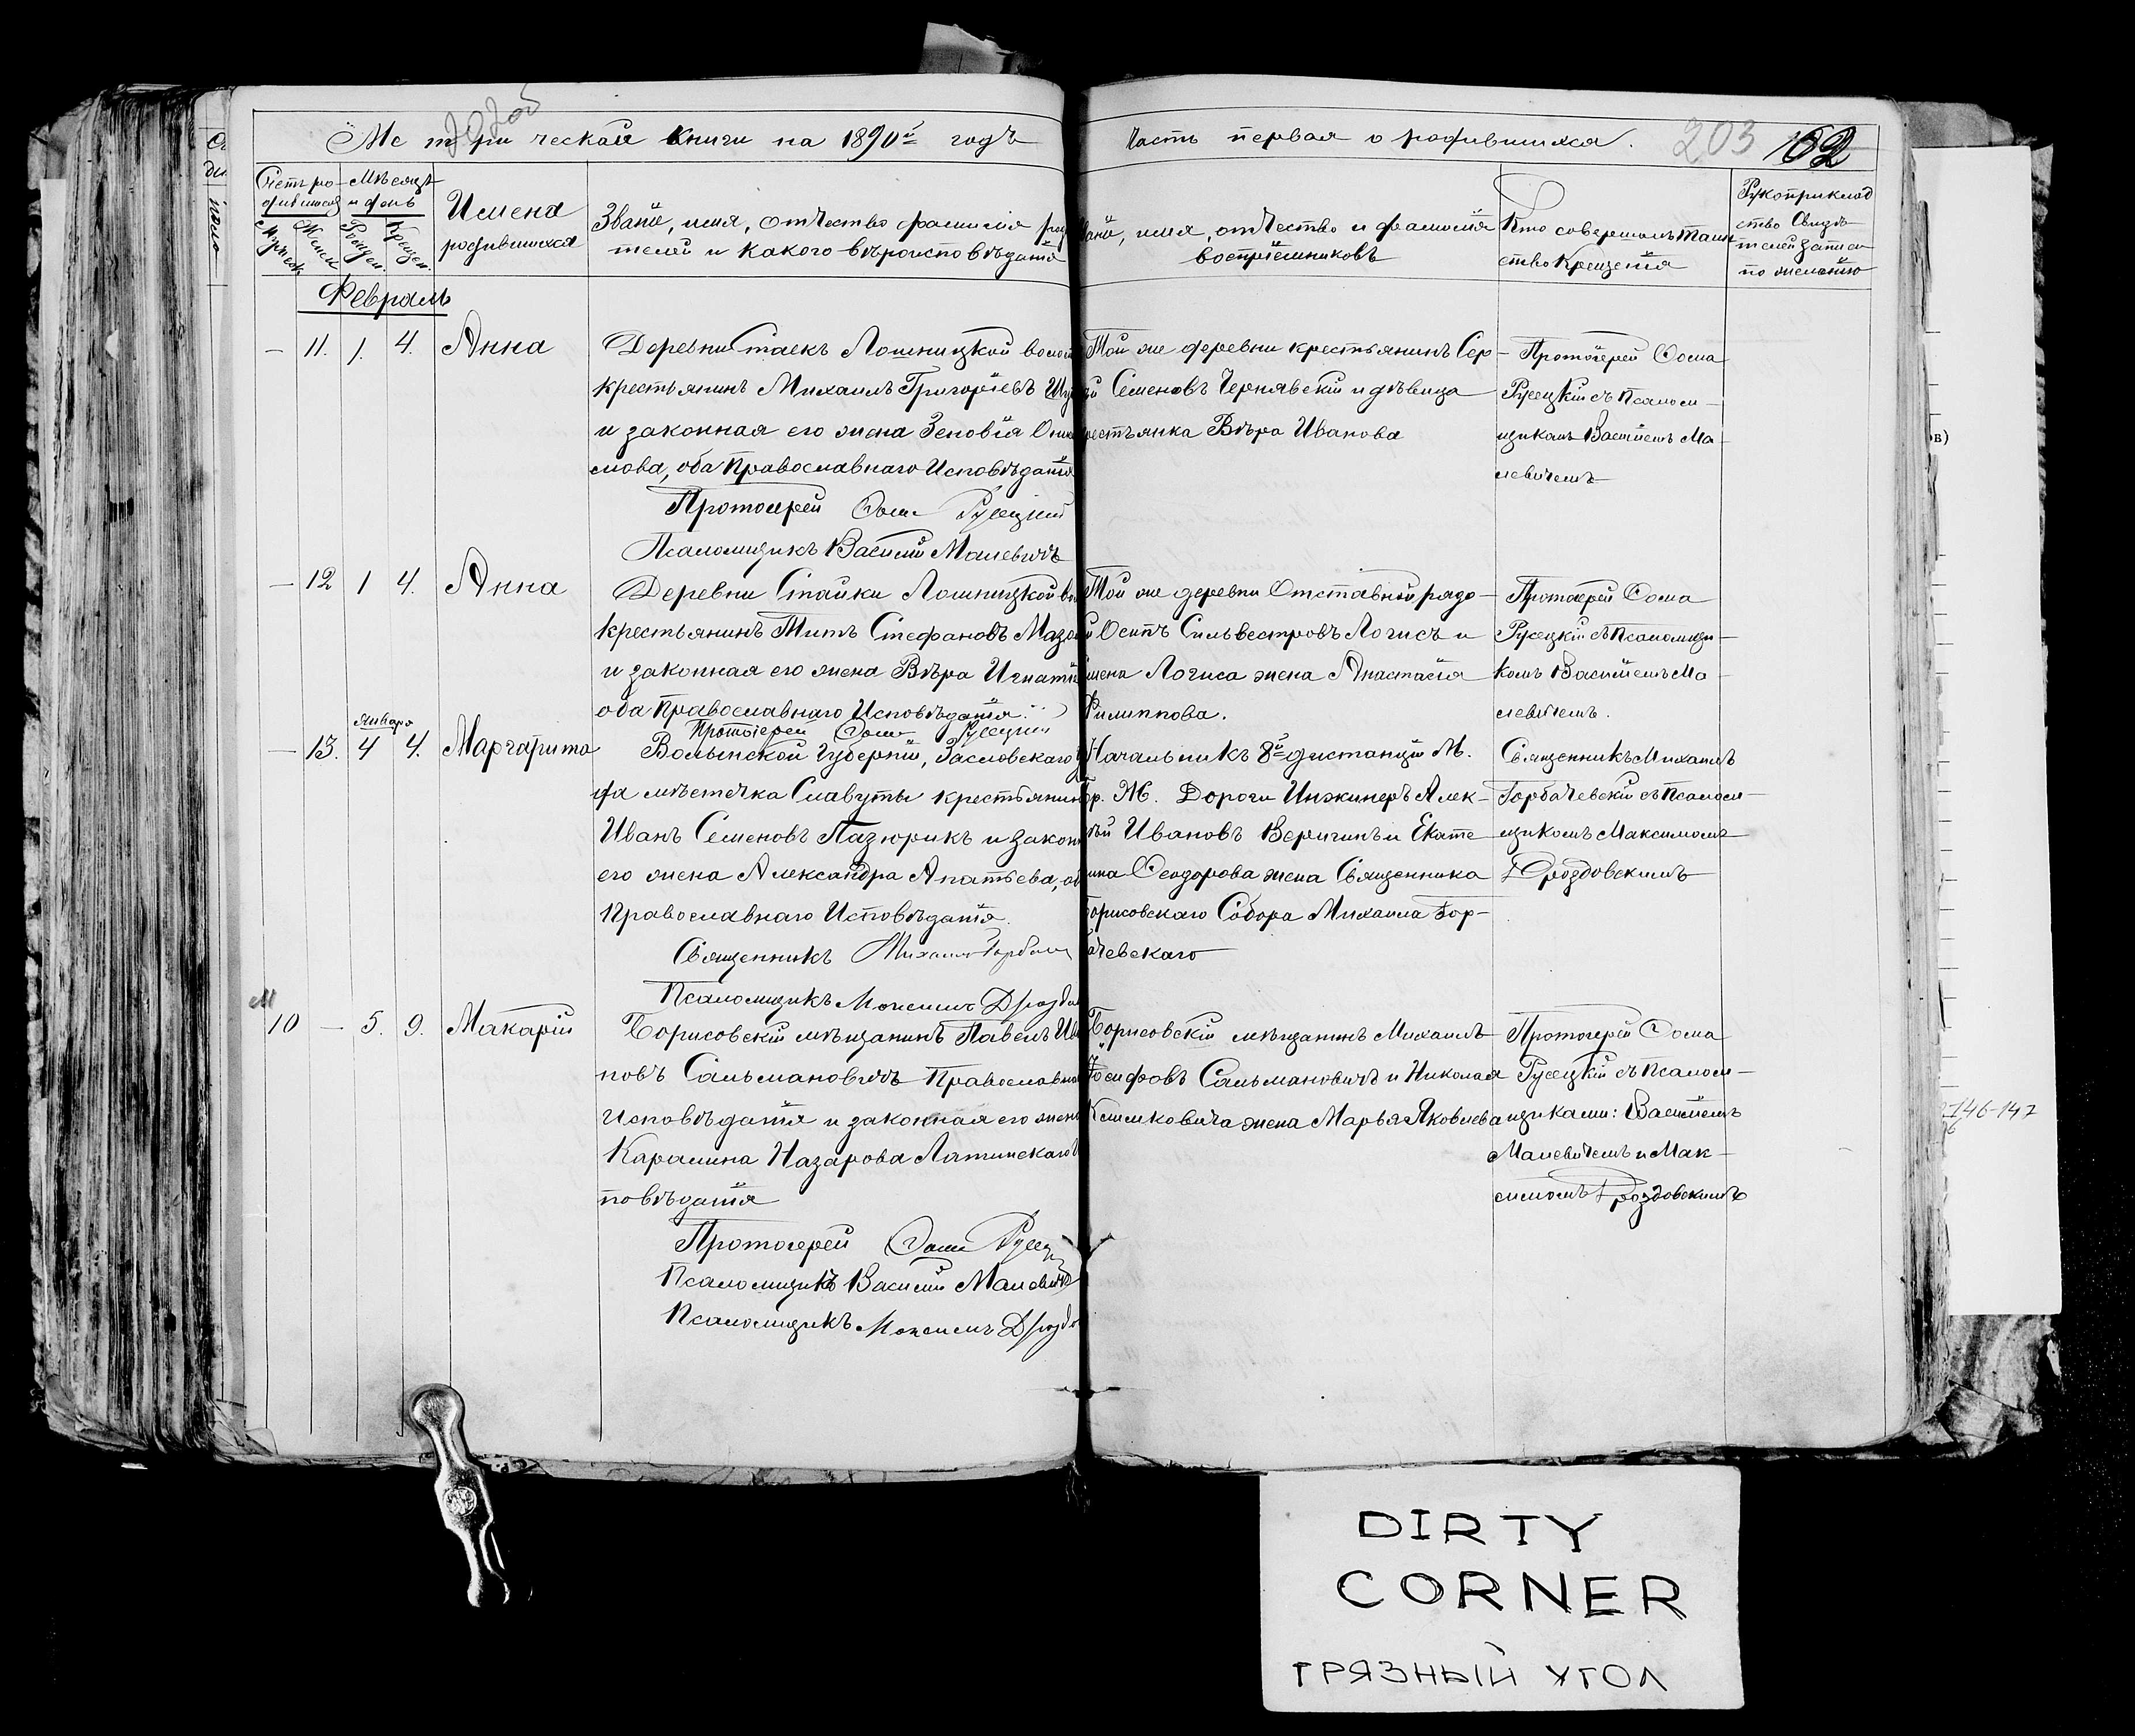 Метрической книги на 1890й годъ
Часть первая о родившихся.
203
102
Счетъ ро-
дившихся
Мужеск.
Женск.
Мѣсяцъ
и день
Рожден.
Крещен.
Имена
родившихся
Званіе, имя, отчество фамилія
телей и какого вѣроисповѣданія
имя, отчество и фамилія
воспріемниковъ
Кто совершалъ таин
ство Крещенія
Рукоприклад
ство Свидѣ-
телей записи
по желанію
Февраль
— 11. 1. 4. Анна
Деревни Стаекъ Лошницкой
крестьянинъ Михаилъ Григоріевъ
и законная его жена Зеновія
мова, оба Православнаго Исповѣданія
Протоіерей Ѳома Русецкій
Псаломщикъ Василій Малевичъ
Той же деревни крестьянинъ Сер-
Семеновъ Чернявскій и дѣвица
крестьянка Вѣра Иванова
Протоіерей Ѳома
Русецкій съ Псалом-
щикомъ Василіемъ Ма-
левичемъ
— 12 1 4. Анна
Деревни Стайки Лошницкой
крестьянинъ Титъ Стефановъ
и законная его жена Вѣра
оба Православнаго Исповѣданія.
Протоіерей Ѳома Русецкій
Той же деревни Отставной рядо-
Осипъ Сильвестровъ Логисъ и
Логиса жена Анастасія
Филиппова.
Протоіерей Ѳома
Русецкій съ Псаломщи-
комъ Василіемъ Ма-
левичемъ.
Января
— 13. 4 4. Маргарита
Волынской Губерніи, Заславскаго
да мѣстечка Славуты крестьянинъ
Иванъ Семеновъ Пазюрикъ и
его жена Александра
Православнаго Исповѣданія.
Священникъ Михаилъ
Псаломщикъ Максимъ
Начальникъ 8й дистанціи М.
Бр. Ж. Дороги Инжинеръ Алек-
Ивановъ Веригинъ и Екате
рина Ѳеодорова жена Священника
Борисовскаго Собора Михаила Гор-
бачевскаго
Священникъ Михаилъ
Горбачевскій съ Псалом-
щикомъ Максимомъ
Дроздовскимъ
М
10 — 5. 9. Макарій
Борисовскій мѣщанинъ Павелъ
новъ Сальмановичъ
Исповѣданія и законная его жена
Каролина Назарова Латинскаго
повѣданія
Протоіерей Ѳома
Псаломщикъ Василій Малевичъ
Псаломщикъ Максимъ
Борисовскій мѣщанинъ Михаилъ
Іосифовъ Сальмановичъ и Николая
Климковича жена Марья Яковлева
Протоіерей Ѳома
Русецкій съ Псалом-
щиками: Василіемъ
Малевичемъ и Мак-
симомъ Дроздовскимъ
146-147
DIRTY
CORNER
ГРЯЗНЫЙ УГОЛ